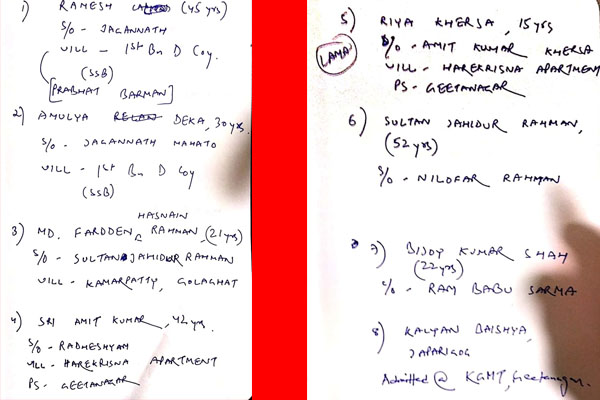 1) RAMESH (45 yrs)
S/o - JAGANNATH
VILL - 1st Bn D Coy.
(SSB)
[PRABHAT BARMAN]
2) AMULYA DEKA, 30 yrs.
S/o - JAGANNATH MAHATO
VILL - 1st Bn D Coy
(SSB)
HASNAIN
3) MD. FARDDEN RAHMAN, (21 yrs)
S/o - SULTAN JAHIDUR RAHMAN
VILL - KAMARPATTY, GOLAGHAT
4) SRI AMIT KUMAR, 42 yrs.
S/o - RADHESHYAM
VILL - HAREKRISNA APARTMENT
PS - GEETANAGAR
5) RIYA KHERSA, 15 yrs
D/o - AMIT KUMAR KHERSA
LAMA
VILL - HAREKRISNA APARTMENT
PS - GEETANAGAR
6) SULTAN JAHIDUR RAHMAN,
(52 yrs)
S/o - NILOFAR RAHMAN
7) BIJOY KUMAR SHAH
(22 yrs)
C/o - RAM BABU SARMA
8) KALYAN BAISHYA,
JAPARIGOG
Admitted @ KGMT, Geetanagar.